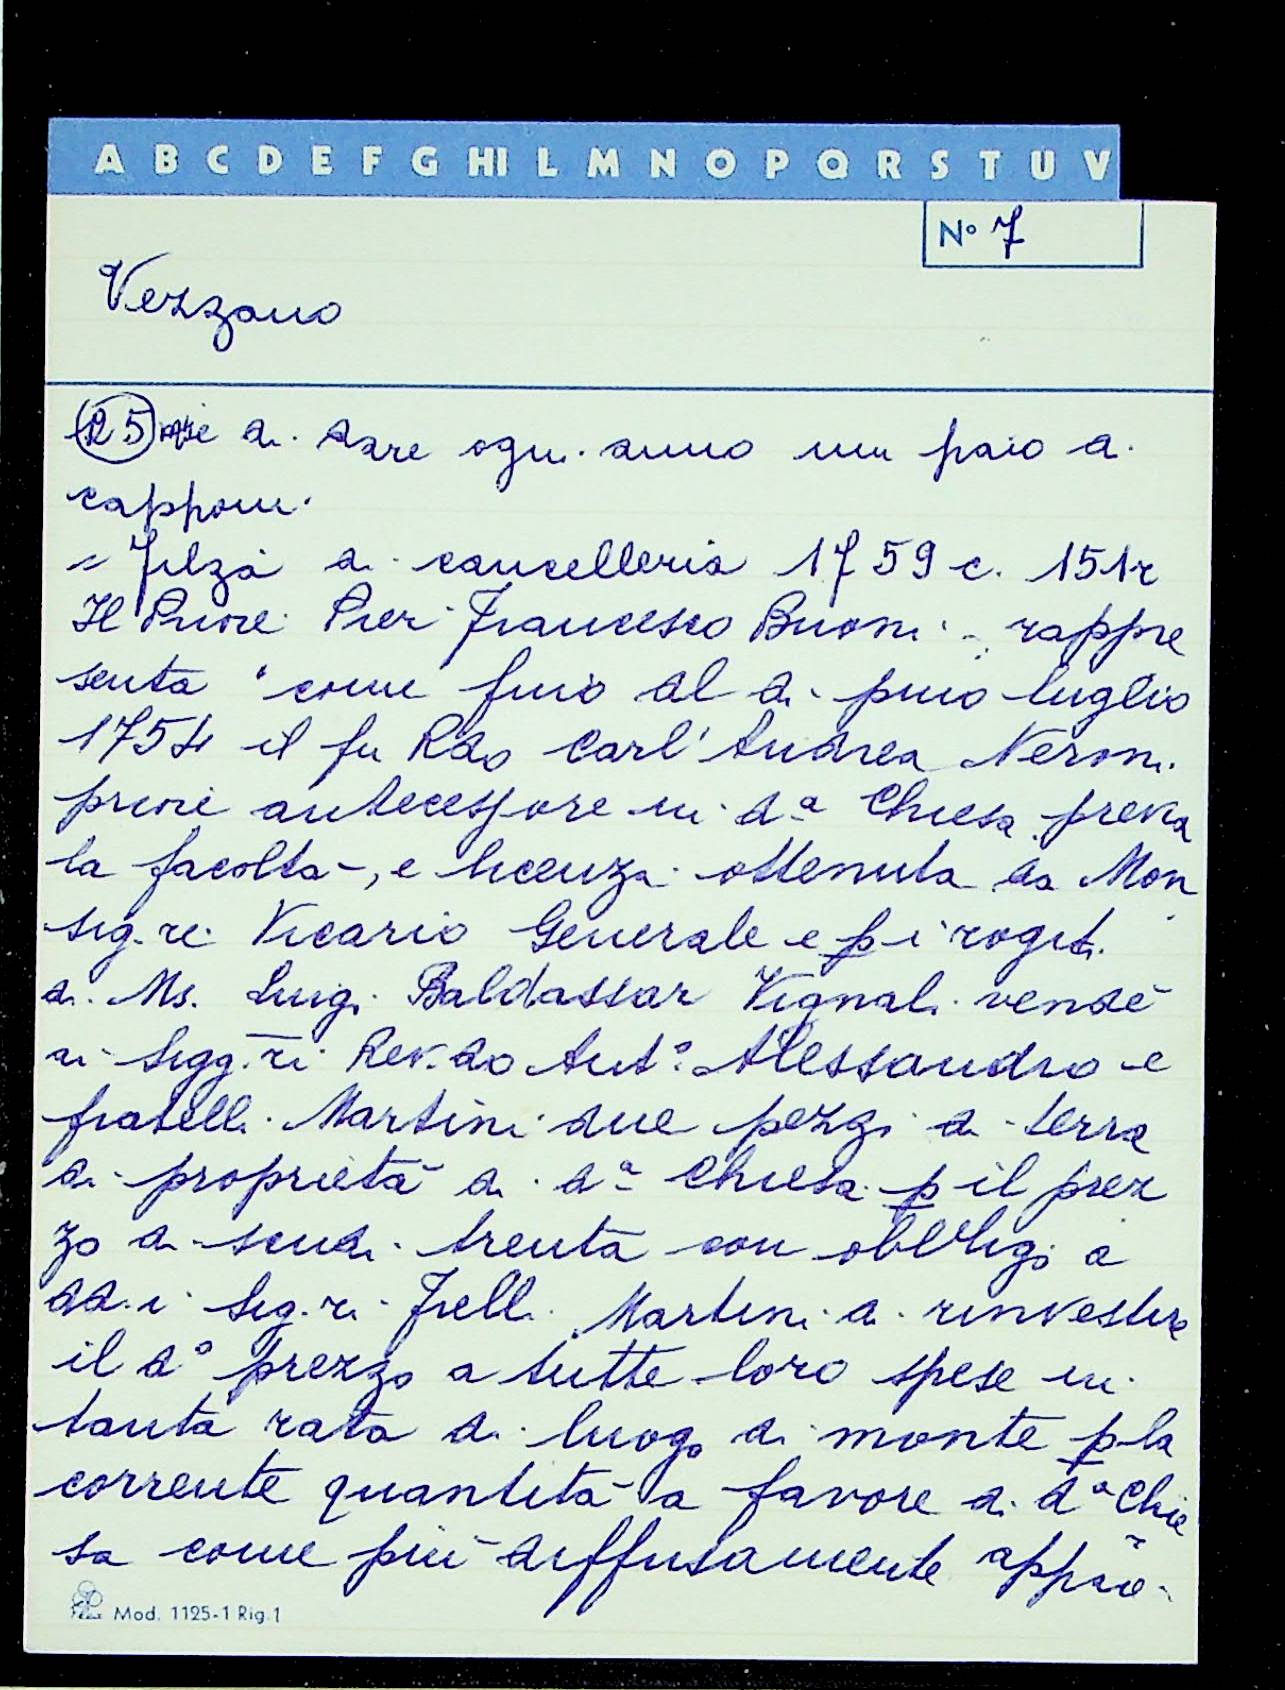 A B C D E F G HI L M N O P Q R S T U V
N° 7
Vezzano
25 di dare ogni anno un paio di
capponi.
= Filza di cancelleria 1759 c. 151r
Il Priore Pier Francesco Buoni rappre
senta "come fino al dì primo luglio
1754 il fu Rdo Carl'Andrea Neroni
priore antecessore in da Chiesa previa
la facoltà, e licenza ottenuta da Mon
sig.re Vicario Generale e p i rogiti
di Ms. Luigi Baldassar Vignali vendè
ai Sigg.ri Rev.do Ant° Alessandro e
fratelli Martini due pezzi di terra
di proprietà di da Chiesa p il prez
zo di scudi trenta con obbligo a
dd.i Sig.ri Frelli Martini di rinvestire
il d° prezzo a tutte loro spese in
tanta rata di luogo di monte p la
corrente quantità a favore di da Chie
sa come più diffusamente
Mod. 1125-1 Rig.1